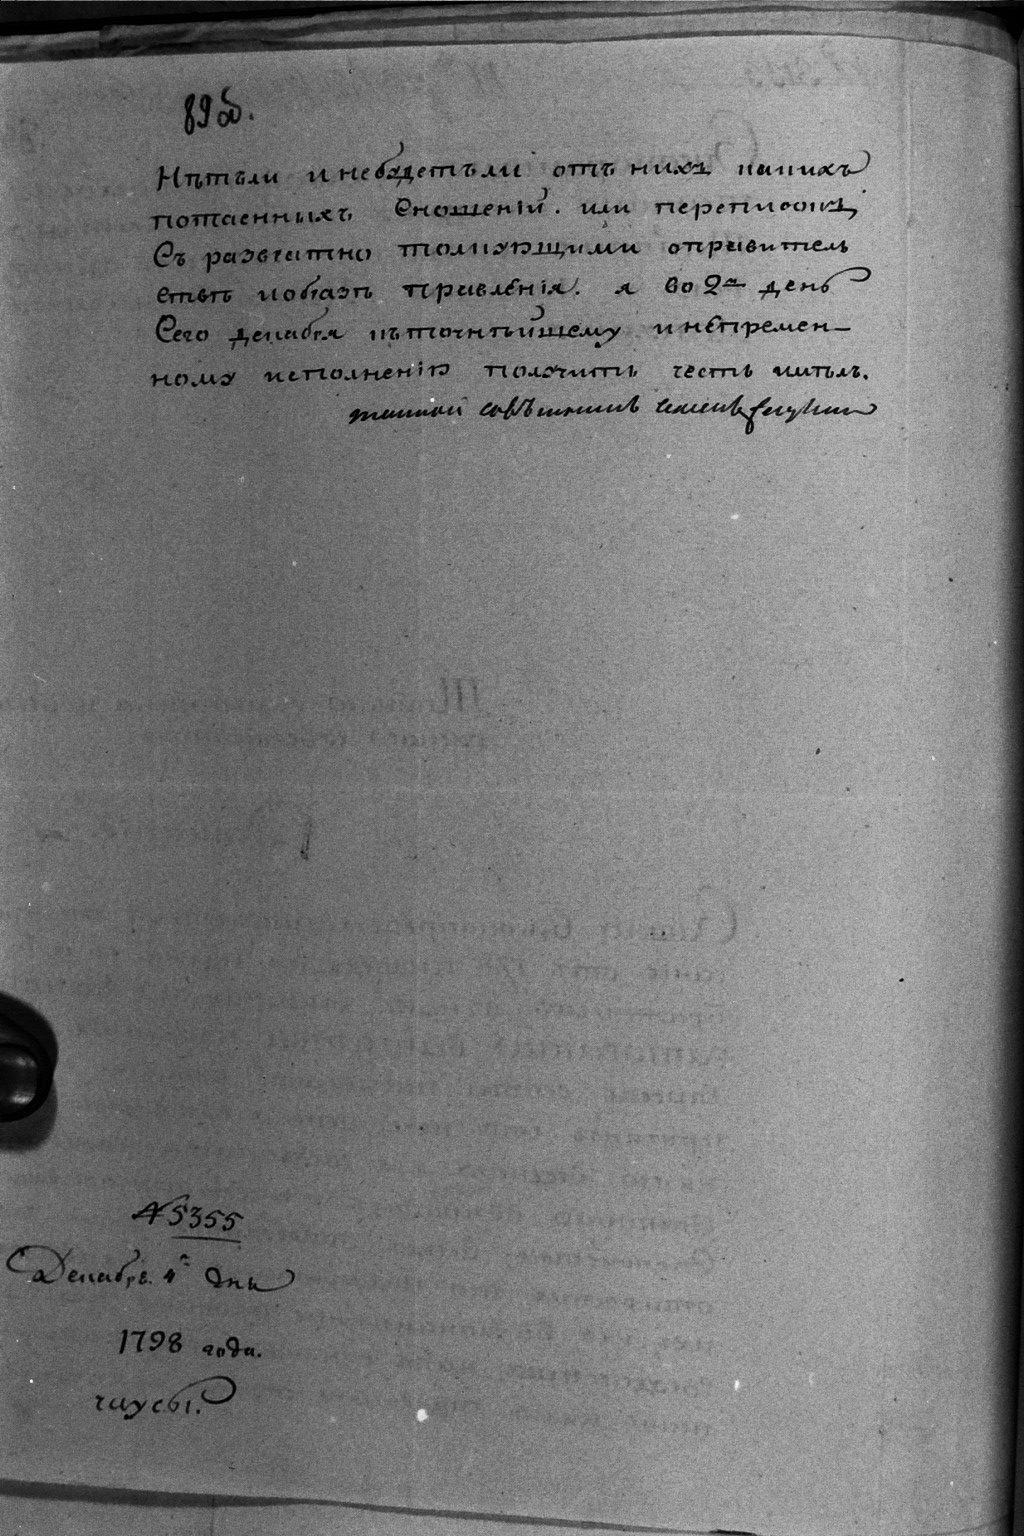 89 об.
Нѣтъли инебудетъли отъ нихъ какихъ
потаенныхъ Сношеній. или переписокъ
Съ развратно толкующими оправитель
ствѣ иобразѣ правленія. я во 2й день
Сего декабря къточнѣйшему инепремен-
ному исполненію получить честь имѣлъ.
тайной совѣтникъ
№ 5355
Декабря. 4го дня
1798 года.
чаусы.